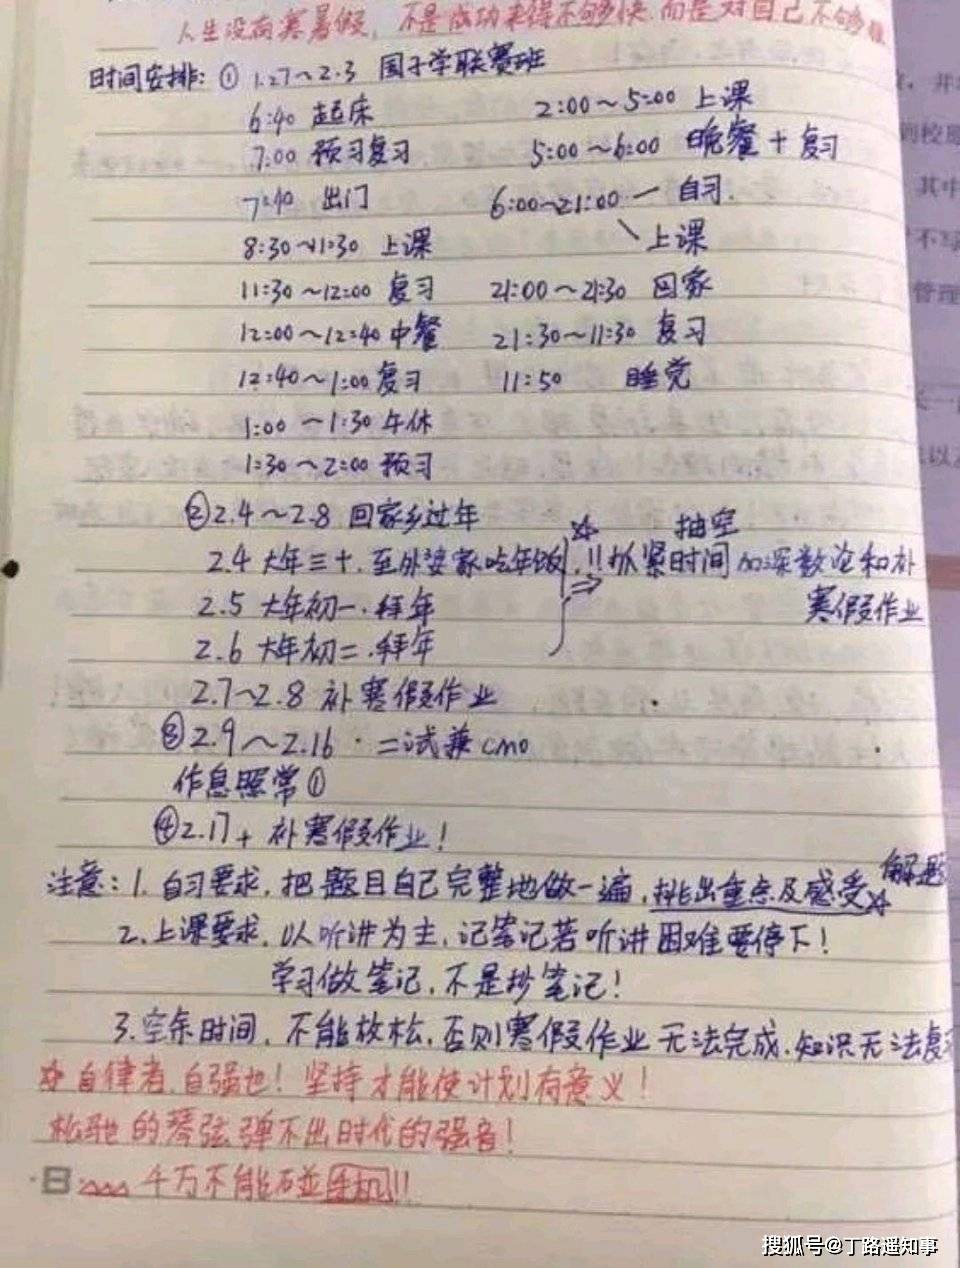 人生没有寒暑假，不是成功来得不够快，而是对自己不够狠
时间安排：① 1.27～2.3 国子学联赛班
6:40 起床 2:00～5:00 上课
7:00 预习复习 5:00～6:00 晚餐＋复习
7:40 出门 6:00～21:00 一 自习.
8:30～11:30 上课 \ 上课
11:30～12:00 复习 21:00～21:30 回家
12:00～12:40 中餐 21:30～11:30 复习
12:40～1:00 复习 11:50 睡觉
1:00～1:30 午休
1:30～2:00 预习
②2.4～2.8 回家乡过年 抽空
2.4 大年三十.至外婆家吃年饭 !!抓紧时间加深数论和补
2.5 大年初一.拜年 寒假作业
2.6 大年初二.拜年
2.7～2.8 补寒假作业
③2.9～2.16 · 二试兼cmo
作息照常①
④2.17+ 补寒假作业!
注意：1. 自习要求，把题目自己完整地做一遍，挑出重点及感受 解题
2. 上课要求，以听讲为主，记笔记若听讲困难要停下!
学习做笔记，不是抄笔记!
3. 空余时间，不能放松，否则寒假作业无法完成，知识无法复
自律者，自强也! 坚持才能使计划有意义!
松驰的琴弦弹不出时代的强音!
千万不能碰手机!!
其中
不写
管理
搜狐号@丁路遥知事